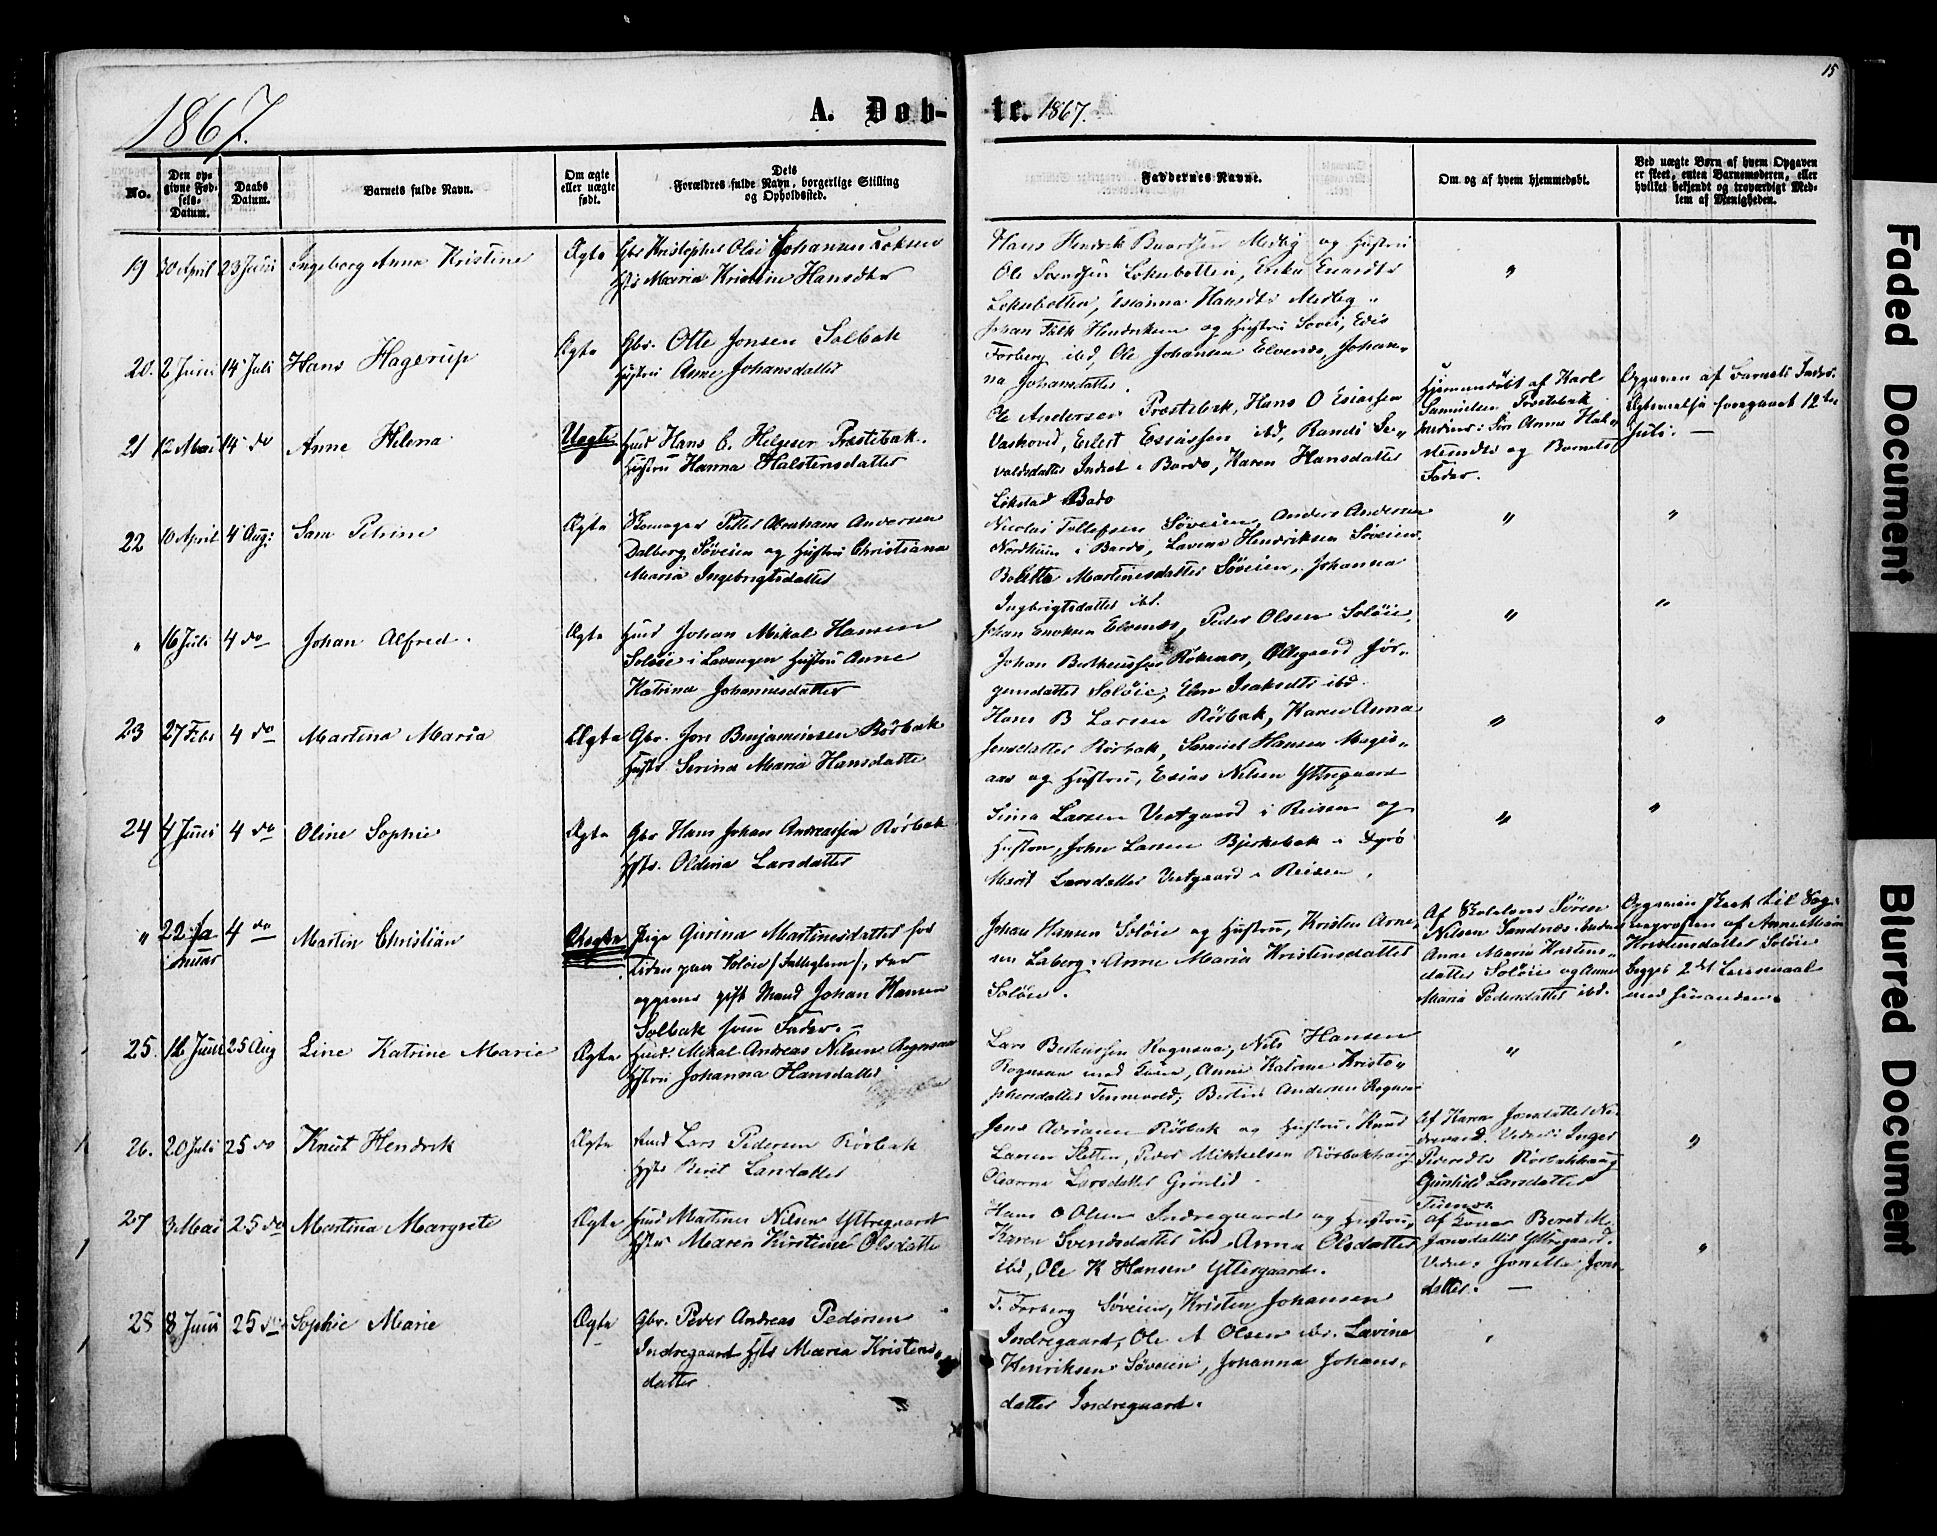 15
1867.
A. Døb-
te. 1867.
No.
Den op-
givne Fød-
sels-
Datum.
Daabs
Datum.
Barnets fulde Navn.
Om ægte
eller uægte
født.
Dets
Forældres fulde Navn, borgerlige Stilling
og Opholdssted.
Faddernes Navne.
Om og af hvem hjemmedøbt.
Ved uægte Børn af hvem Opgaven
er skeet, enten Barnemoderen, eller
hvilket bekjendt og troværdigt Med-
lem af Menigheden.
19 30 April 23 Juni Ingeborg Anna Kristine Ægte Gbr Kristopher Olai Johansen Loksen
Hstr Maria Kristine Hansdtr
Hans Hendrik Baardsen Medby og Hustru
Ole Svendsen Loksebotten,
Hansdtr Medby "
20. 2 Juni 14 Juli Hans Hagerup Ægte Gbr. Otte Jonsen Solbak
Hustru Anne Johansdatter
Johan Falk Hendriksen og Hustru
Forberg ibd, Ole Johansen Elvenes, Johan-
na Johansdatter.
21 12 Mai 14 do Anne Helena Uægte Hmd Hans C. Helgesen Prestebak.
Hustru Hanna Halstensdatter
Ole Andersen Prestebak, Hans O Esiassen
Eilert Esiassen ibd, Randi Si-
valdsdatter Indset i Bardo, Karen Hansdatter
Bardo
Hjemmedøbt af Karl
Samuelsen Prestebak
og Barnets
Fader.
Opgaven af Barnets Fader.
12te
Juli. —
22 10 April 4 Aug: Sara Petrine Ægte Petter Abraham Andersen
Dalberg Søveien og Hustru Christiana
Maria Ingebrigtsdatter
Nicolai Tollefsen Søveien, Anders Andersen
i Bardo, Hendriksen Søveien,
Martinesdatter Søveien, Johanna
Ingbrigtsdatter ibd.
" 16 Juli 4 do Johan Alfred. Ægte Hmd Johan Mikal Hansen
Soløie i Lavangen Hustru Anne
Katrina Johannesdatter
Johan Enoksen Elvenes, Peder Olsen Soløie,
Johan Røkenes, Ollegaard Jør-
gensdatter Soløie, Elen Isaksdtr ibd.
23 27 Febr 4 do Martina Maria Ægte Gbr. Jon Benjaminsen Rørbak
Hustr Serina Maria Hansdatter
Hans B Larsen Rørbak, Karen Anna
Jensdatter Rørbak, Samuel Hansen
og Hustru, Esias Nilsen Yttregaard
24 4 Juni 4 do Oline Sophie Ægte Gbr Hans Johan Andreassen Rørbak
Hstr. Oldina Larsdatter
Larsen Vestgaard i Reisen og
Hustru, John Larsen Bjerkebak i Dyrø
Marit Larsdatter Vestgaard i Reisen.
" 22 Ja-
nuar 4 do Martin Christian Uægte Pige Gurina Martinesdatter for
Tiden paa Soløie, der
opgiver gift Mand Johan Hansen
Solbak som Fader. —
Johan Hansen Soløie og Hustru, Kristen Arne-
sen Laberg, Anne Maria Kristensdatter
Soløie.
Af Søren
Nilsen Sandnes
Anne Maria Kristens-
datter Soløie og Anne
Maria Pedersdatter ibd.
Opgaven skeet til Sog-
nepresten af Anne Maria
Kristensdatter Soløie
Begges 2det Leiermaal
med hinanden.
25. 12 Juni 25 Aug Line Katrine Marie Ægte Hmd. Mikal Andreas Nilsen Rognsaa
Hstru Johanna Hansdatter
Lars Rognsaa, Nils Hansen
Rognsaa med Anne Katrine Kristo-
phersdatter Tennevold, Andersen Rognsaa
26. 20 Juli 25 do Knut Hendrik Ægte Hmd Lars Pedersen Rørbak
Hstr Berit Larsdatter
Jens Adriansen Rørbak og Hustru, Knud
Larsen Sletten, Peder Mikkelsen Rørbakhaug
Oleanna Larsdatter Grønlid.
Af Karen Jonsdatter
Vidner: Inger
Pedersdtr Rørbakhaug
Gunhild Larsdatter
27 3 Mai 25 do Martina Margrete Ægte Hmd Martines Nilsen Yttregaard
Hstru Maren Kirstine Olsdatter
Hans O Olsen Indregaard og Hustru,
Karen Svendsdatter ibd Anna Olsdatter
ibd, Ole K Hansen Yttregaard.
Af Beret M.
Jonsdatter Yttregaard.
Jonetta Jons-
datter. —
28 8 Juni 25 do Sophie Marie Ægte Gbr. Peder Andreas Pedersen
Indregaard Hstr Maria Kristens-
datter
T. Forberg Søveien, Kristen Johansen
Indregaard, Ole A Olsen ibd. Lavina
Henriksen Søveien, Johanna Johans-
datter Indregaard.
Faded Document
Blurred Document